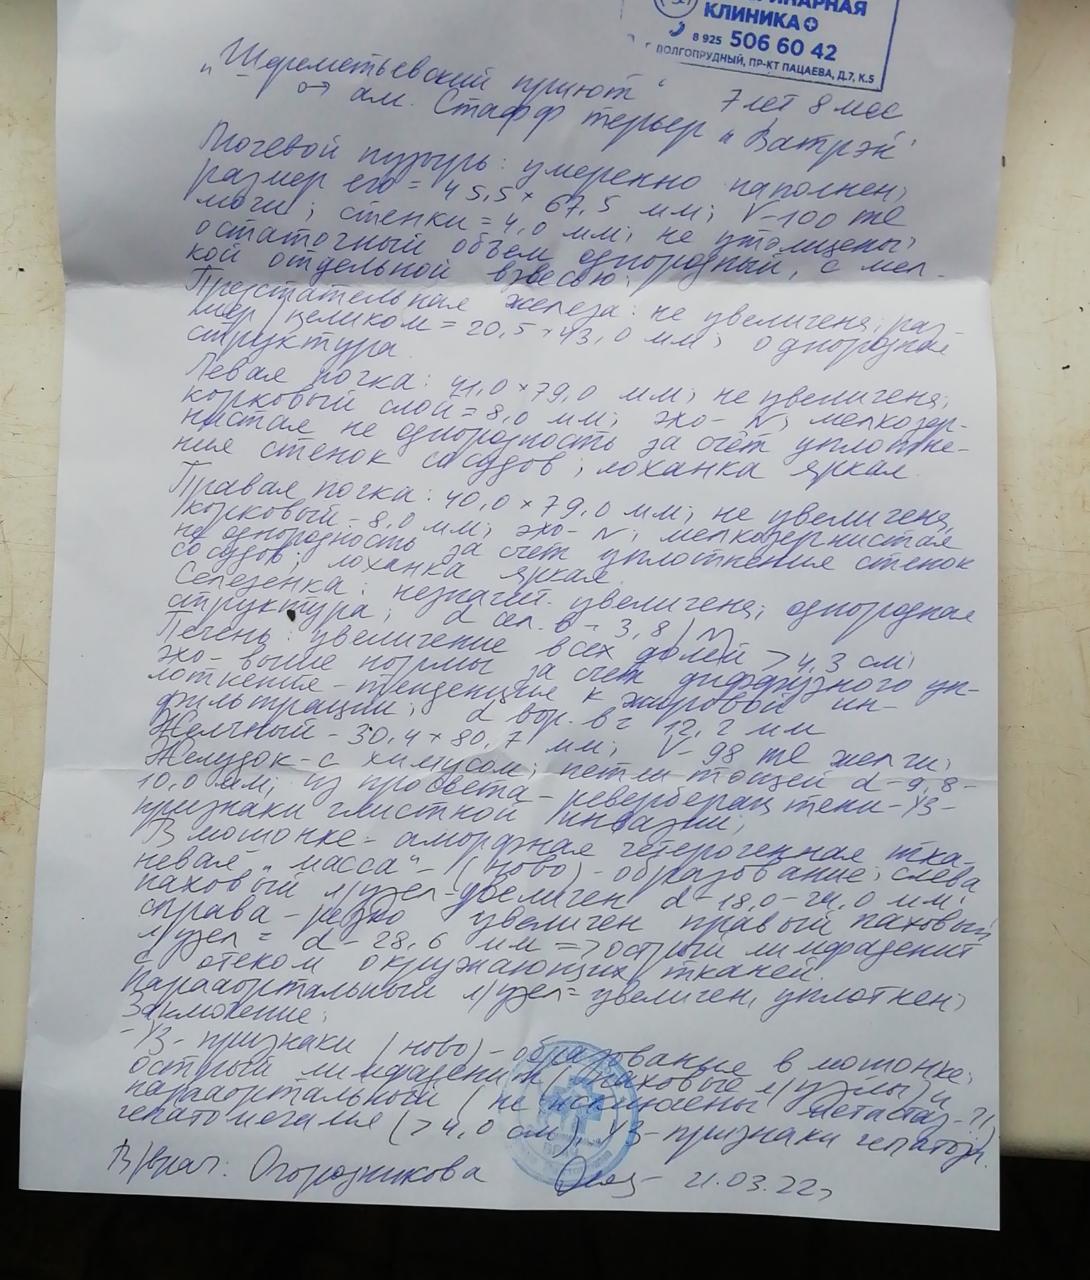 ЕРИНАРНАЯ
КЛИНИКА
8 925 506 60 42
Г. ДОЛГОПРУДНЫЙ, ПР-КТ ПАЦАЕВА, Д.7, К.5
"Шереметьевский приют" 7 лет 8 мес
ам. Стафф терьер "Ватрэн"
Мочевой пузырь: умеренно наполнен;
размер его = 45,5 × 67,5 мм; V-100 
мочи; стенки = 4,0 мм; не утолщены;
остаточный объем однородный, с мел-
кой отдельной взвесью;
Предстательная железа: не увеличена; раз-
мер целиком = 20,5 × 43,0 мм; однородная
структура.
Левая почка: 41,0 × 79,0 мм; не увеличена;
корковый слой = 8,0 мм; эхо- N; мелкозер-
нистая не однородность за счёт уплотне-
ния стенок сосудов; лоханка яркая.
Правая почка: 40,0 × 79,0 мм; не увеличена,
корковый - 8,0 мм; эхо- N; мелкозернистая
не однородность за счет уплотнения стенок
сосудов; лоханка яркая.
Селезенка: незначит. увеличена; однородная
структура; d сел. в - 3,8 /N/
Печень: увеличение всех долей > 4,3 см;
эхо- выше нормы за счет диффузного уп-
лотнения - тенденция к жировой ин-
фильтрации; d вор. в = 12,2 мм
Желчный - 30,4 × 80,7 мм; V- 98 желчи;
Желудок - с химусом; петли тощей d - 9,8-
10,0 мм; из просвета - ревербера тени - УЗ-
признаки глистной инвазии;
В мошонке - аморфная гетерогенная тка-
невая "масса" - (ново)- образование; слева
паховый л/узел - увеличен d - 18,0 - 24,0 мм;
справа - резко увеличен правый паховый
л/узел = d - 28,6 мм => острый лимфаденит
с отеком окружающих тканей.
Парааортальный л/узел = увеличен, уплотнен;
Заключение:
- УЗ- признаки (ново)- образование в мошонке;
острый лимфаденит (паховые л/узлы) и
парааортальный (не исключены метастаз-?),
гепатомегалия (> 4,0 см), УЗ- признаки гепатоза.
В/врач: Огородникова 21.03.22г